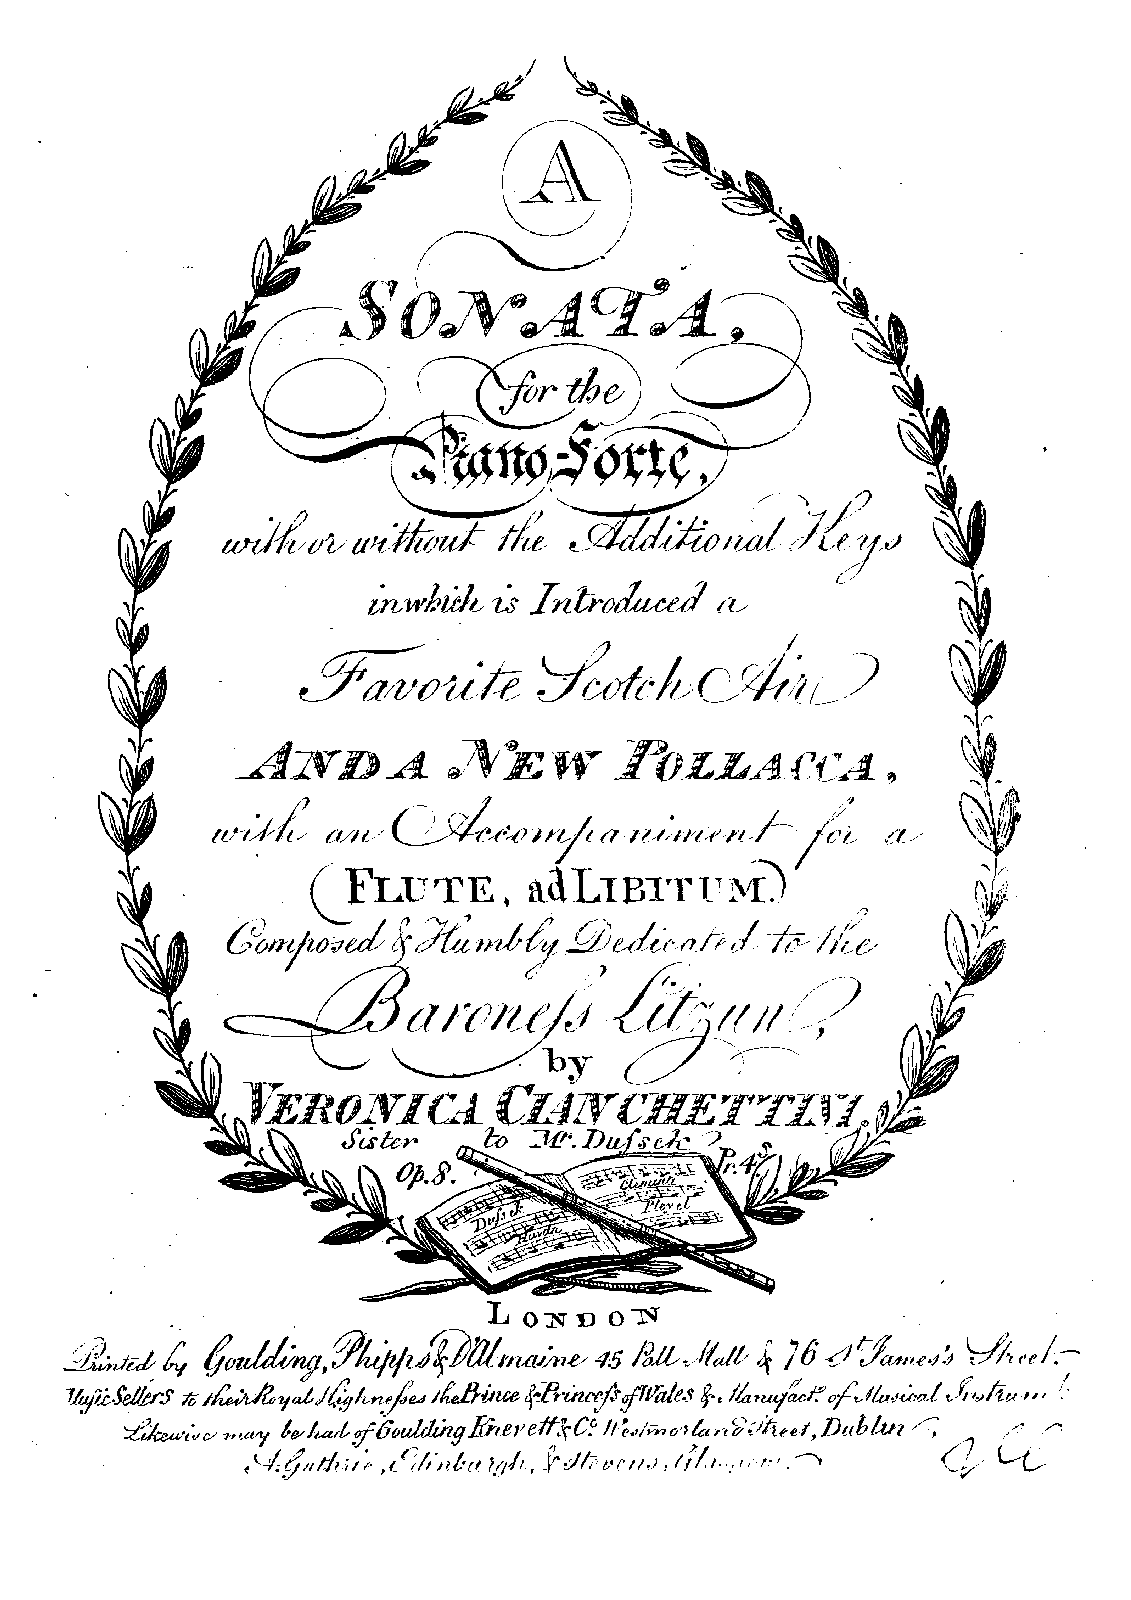 A
SONATA,
for the
Piano-Forte,
with or without the Additional Keys
in which is Introduced a
Favorite Scotch Air
AND A NEW POLLACCA,
with an Accompaniment for a
(FLUTE, ad LIBITUM.)
Composed & Humbly Dedicated to the
Baroneſs Litzun,
by
VERONICA CIANCHETTINI,
Sister to Mr. Duſsek
Op. 8. Pr. 4s
Duſsek
Haydn
Clementi
Pleyel
LONDON
Printed by Goulding, Phipps & D'Almaine 45 Pall Mall & 76 St James's Street.
Muſic Sellers to their Royal Highneſses the Prince & Princeſs of Wales & Manufactrs of Musical Instrumts
Likewise may be had of Goulding Knevett & Co. Westmorland Street, Dublin,
A. Guthrie, Edinburgh, & Stevens, Glasgow.